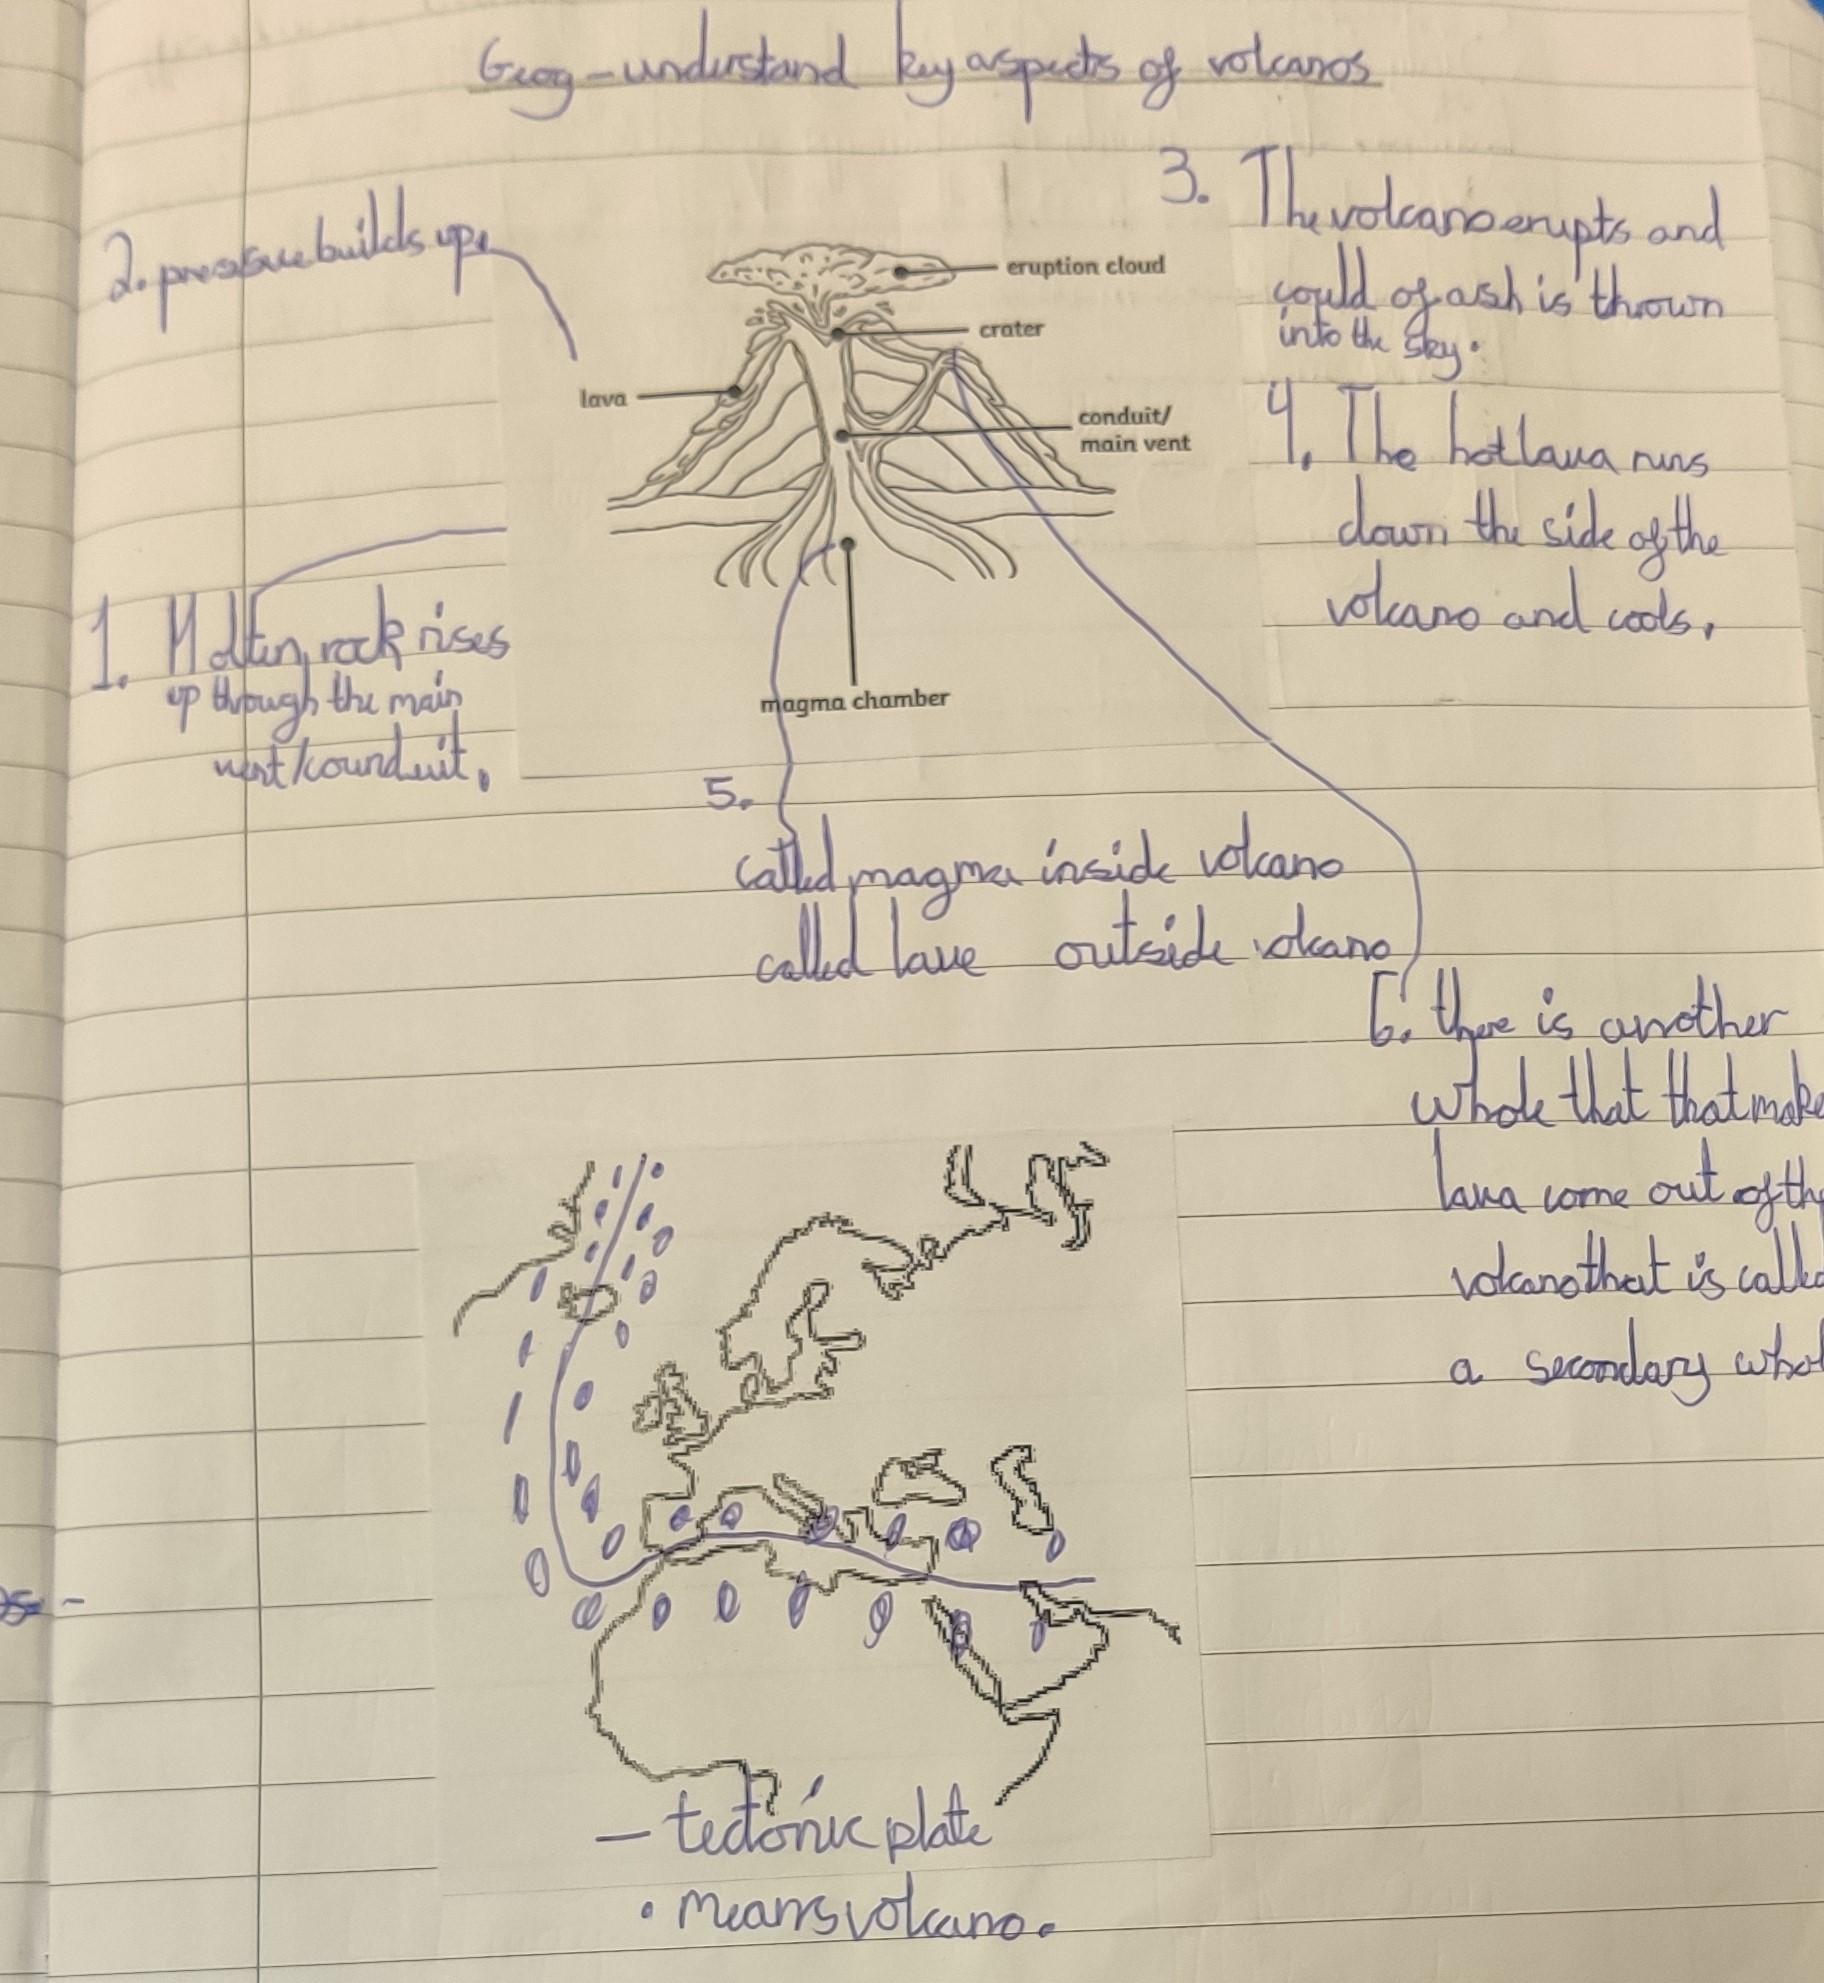 Geog - understand key aspects of volcanos
2. pressure builds up.
3. The volcano erupts and
could of ash is thrown
into the sky.
eruption cloud
crater
lava
conduit/
main vent
4. The hot lava runs
down the side of the
volcano and cools.
1. Molten rock rises
up through the main
vent/counduit.
magma chamber
5.
called magma inside volcano
called lave outside volcano
6. there is another
whole that that make
lava come out of the
volcano that is calle
a secondary whol
- tectonic plate
• means volcano.